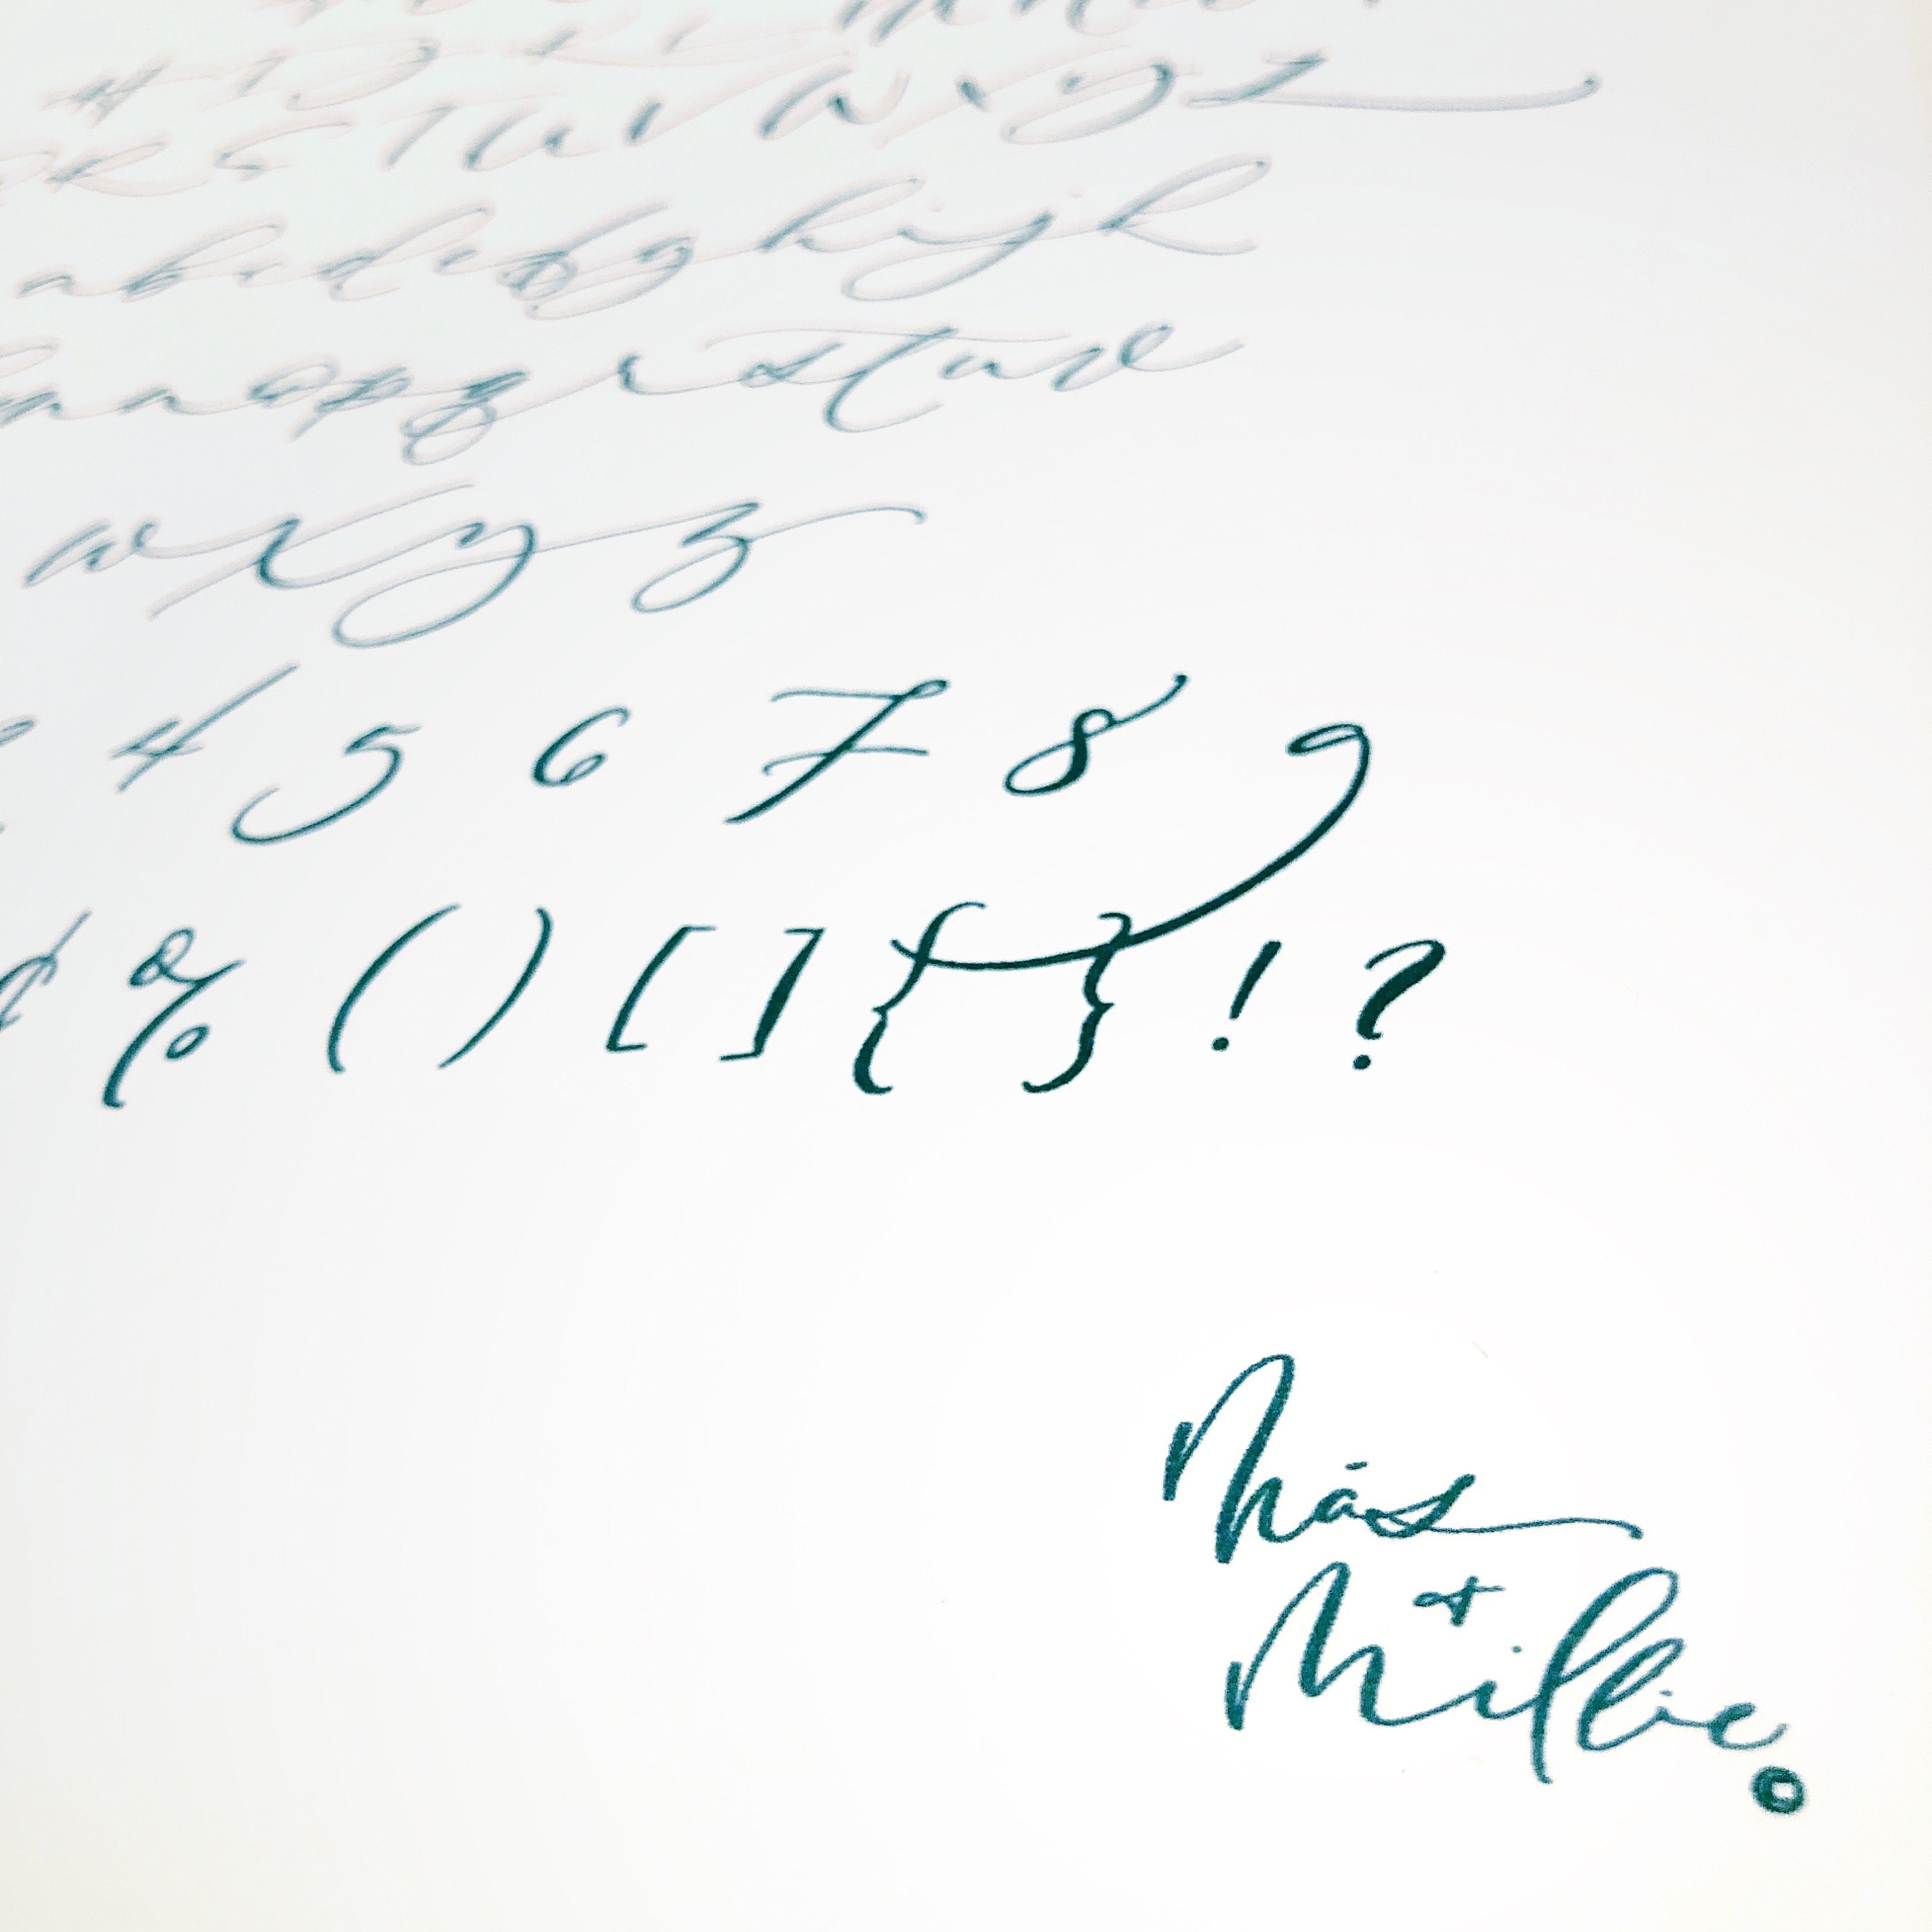 R S T U V W X Y Z
a b c d e f g h i j k
m n o p q r s t u v
w x y z
4 5 6 7 8 9
¢ % ( ) [ ] { } ! ?
Más
of
Millie